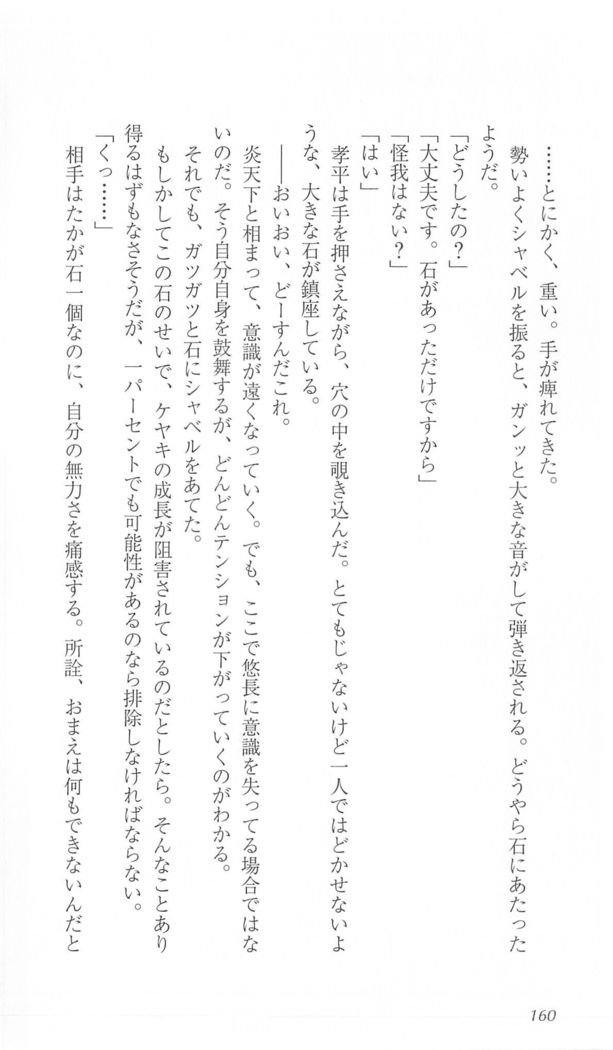 ……とにかく、重い。手が痺れてきた。
勢いよくシャベルを振ると、ガンッと大きな音がして弾き返される。どうやら石にあたった
ようだ。
「どうしたの？」
「大丈夫です。石があっただけですから」
「怪我はない？」
「はい」
孝平は手を押さえながら、穴の中を覗き込んだ。とてもじゃないけど一人ではどかせないよ
うな、大きな石が鎮座している。
――おいおい、どーすんだこれ。
炎天下と相まって、意識が遠くなっていく。でも、ここで悠長に意識を失ってる場合ではな
いのだ。そう自分自身を鼓舞するが、どんどんテンションが下がっていくのがわかる。
それでも、ガツガツと石にシャベルをあてた。
もしかしてこの石のせいで、ケヤキの成長が阻害されているのだとしたら。そんなことあり
得るはずもなさそうだが、一パーセントでも可能性があるのなら排除しなければならない。
「くっ……」
相手はたかが石一個なのに、自分の無力さを痛感する。所詮、おまえは何もできないんだと
160